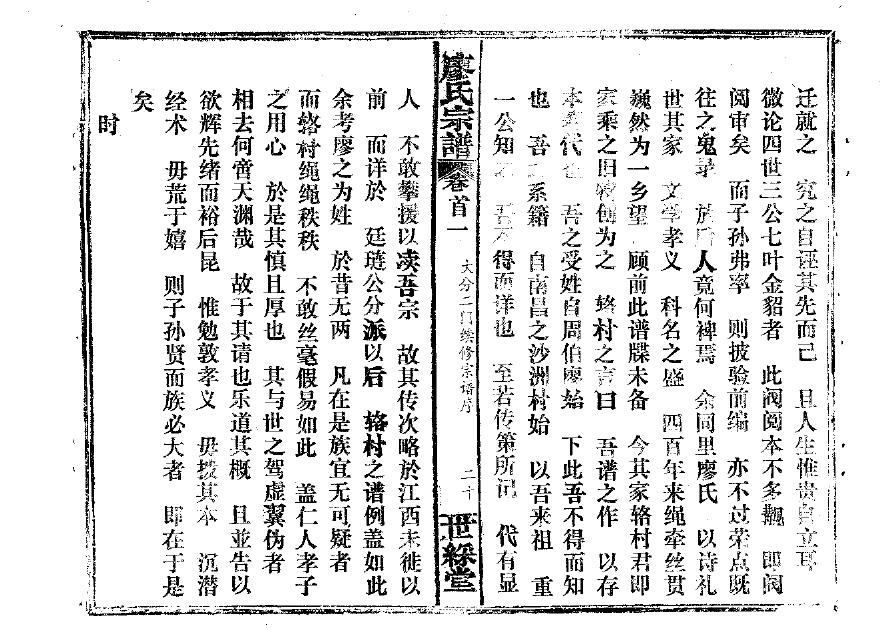 迁就之 究之自诬其先而己 且人生惟贵自立耳
微论四世三公七叶金貂者 此阀阅本不多觏 即阀
阅审矣 而子孙弗率 则披验前编 亦不过荣点既
往之鬼录 于后人竟何裨焉 余同里廖氏 以诗礼
世其家 文学孝义 科名之盛 四百年来绳牵丝贯
巍然为一乡望 顾前此谱牒未备 今其家辂村君即
家乘之旧 创为之 辂村之言曰 吾谱之作 以存
本 代 吾之受姓自周伯廖始 下此吾不得而知
也 吾 系籍 自南昌之沙洲村始 以吾来祖 重
一公知之 吾不得而详也 至若传策所记 代有显
廖氏宗谱 卷首一 大分二门续修宗谱序 二十 世綵堂
人 不敢攀援以渎吾宗 故其传次略於江西未徙以
前 而详於 廷琏公分派以后 辂村之谱例盖如此
余考廖之为姓 於昔无两 凡在是族宜无可疑者
而辂村绳绳秩秩 不敢丝毫假易如此 盖仁人孝子
之用心 於是其慎且厚也 其与世之驾虚翼伪者
相去何啻天渊哉 故于其请也乐道其概 且並告以
欲辉先绪而裕后昆 惟勉敦孝义 毋拨其本 沉潜
经术 毋荒于嬉 则子孙贤而族必大者 即在于是
矣
时